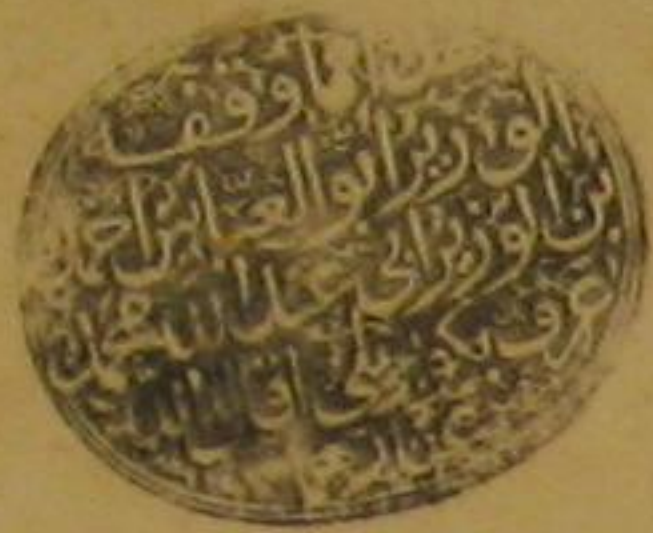 ما وقفه
الوزير ابو العباس احمد
بن الوزير ابي عبد الله محمد
عرف بكوبريلي اقال الله
عثارهما